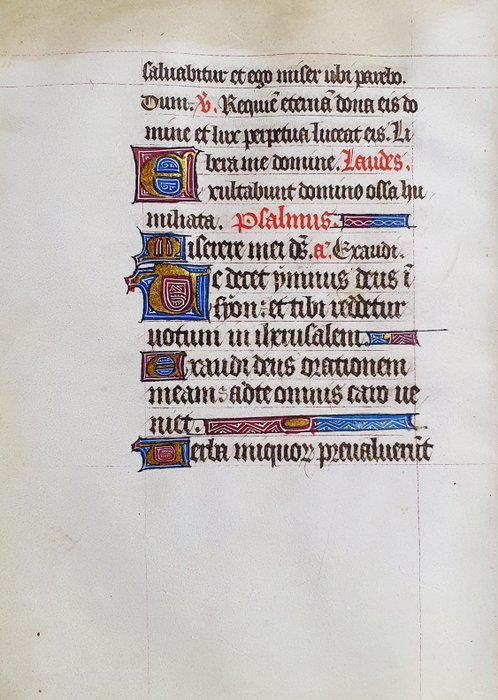 saluabitur et ego miser ubi parebo.
Dum. V̷. Requiē eternā dona eis do
mine et lux perpetua luceat eis. Li
bera me domine. Laudes.
Exultabunt domino ossa hu
miliata. Psalmus.
Miserere mei ds̄. a. Exaudi.
Te decet ymnus deus ī
syon: et tibi reddetur
uotum in iherusalem.
Exaudi deus orationem
meam: ad te omnis caro ue
niet.
Uerba iniquoꝝ preualuerūt